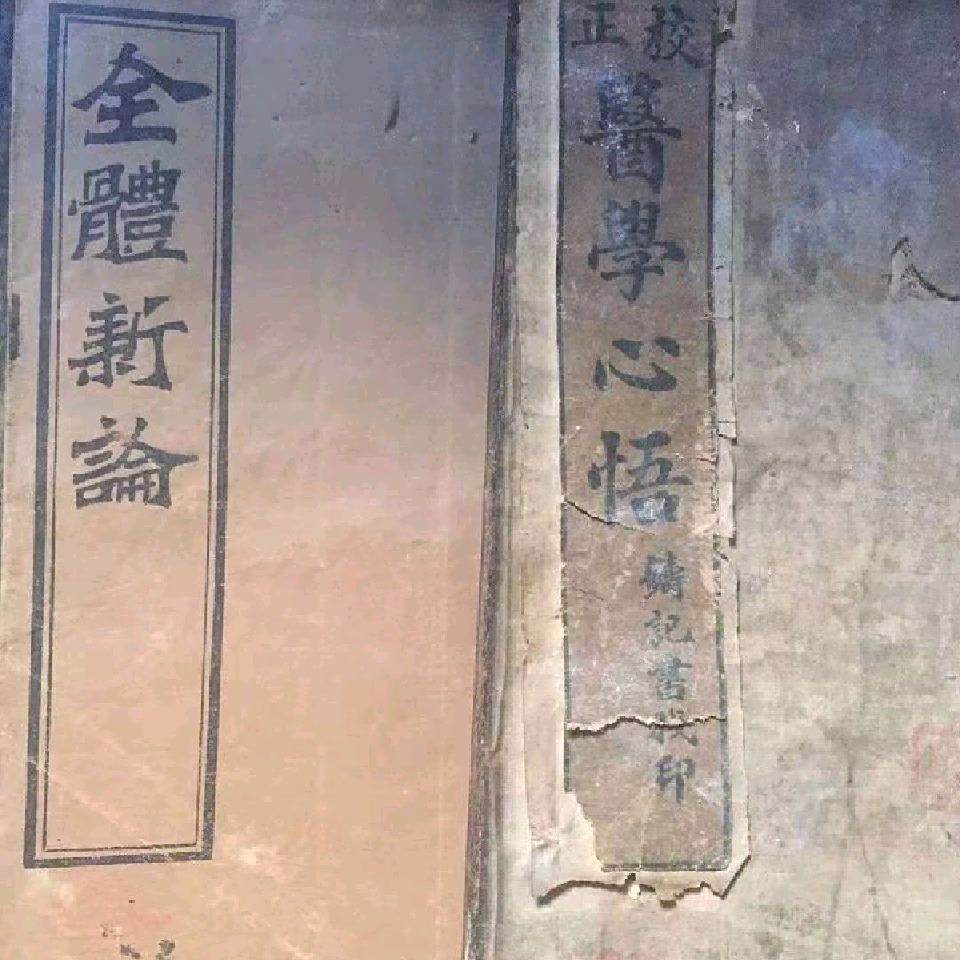 全體新論
校正
醫學心悟
鑄記書棧印